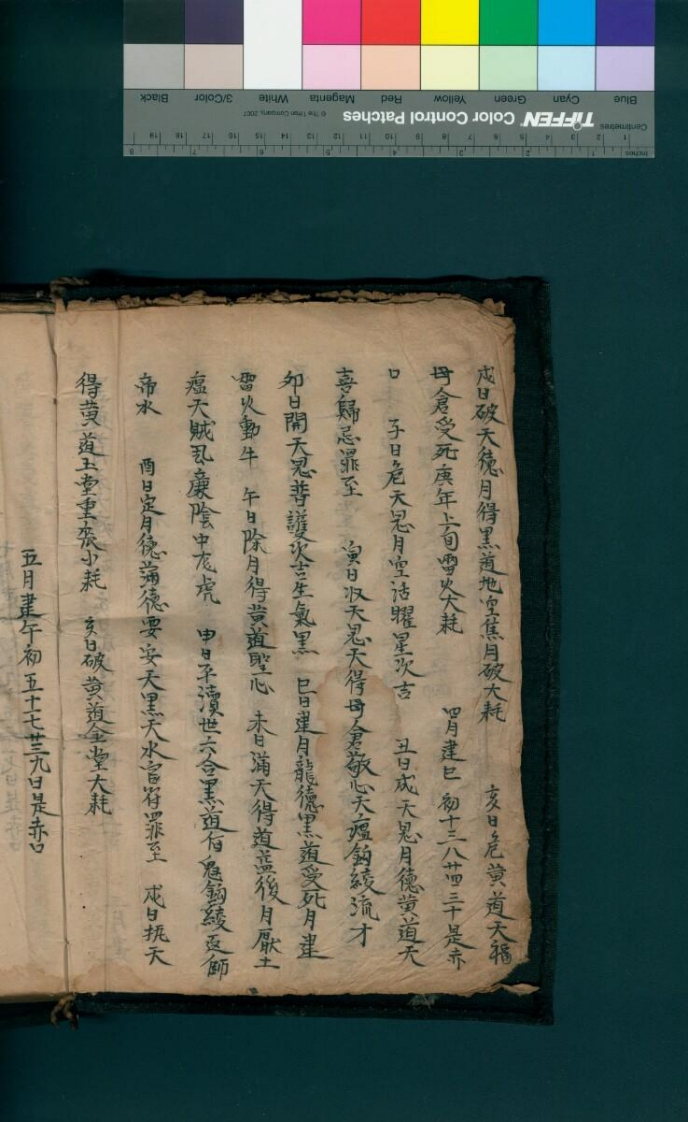 戌日破天徳月得黒道地空焦月破大耗 亥日危黄道天福
母倉受死庚年上旬雷火大耗 四月建巳 初十三八廿四三十是赤
口 子日危天恩月空活曜星次吉 丑日成天恩月德黄道天
喜歸忌罪至 寅日收天恩天得母倉敬心天瘟鈎绫流才
卯日開天恩普護次吉生氣黒 巳日建月龍德黒道受死月建
雷火動牛 午日除月得黄道聖心 未日滿天得道益後月厭土
瘟天賊乱廉陰中 虎 申日平瀆世六合黒道伯鬼鈎绫 師
帝水 酉日定月德滿德要安天黒天水官符罪至 戌日执天
得黄道玉堂重喪小耗 亥日破黄道金堂大耗
五月建午初五十七廿三九日是赤口
Blue
Cyan
Green
Yellow
Red
Magenta
White
3/Color
Black
Centimetres
TIFFEN Color Control Patches
© The Tiffen Company, 2007
Inches